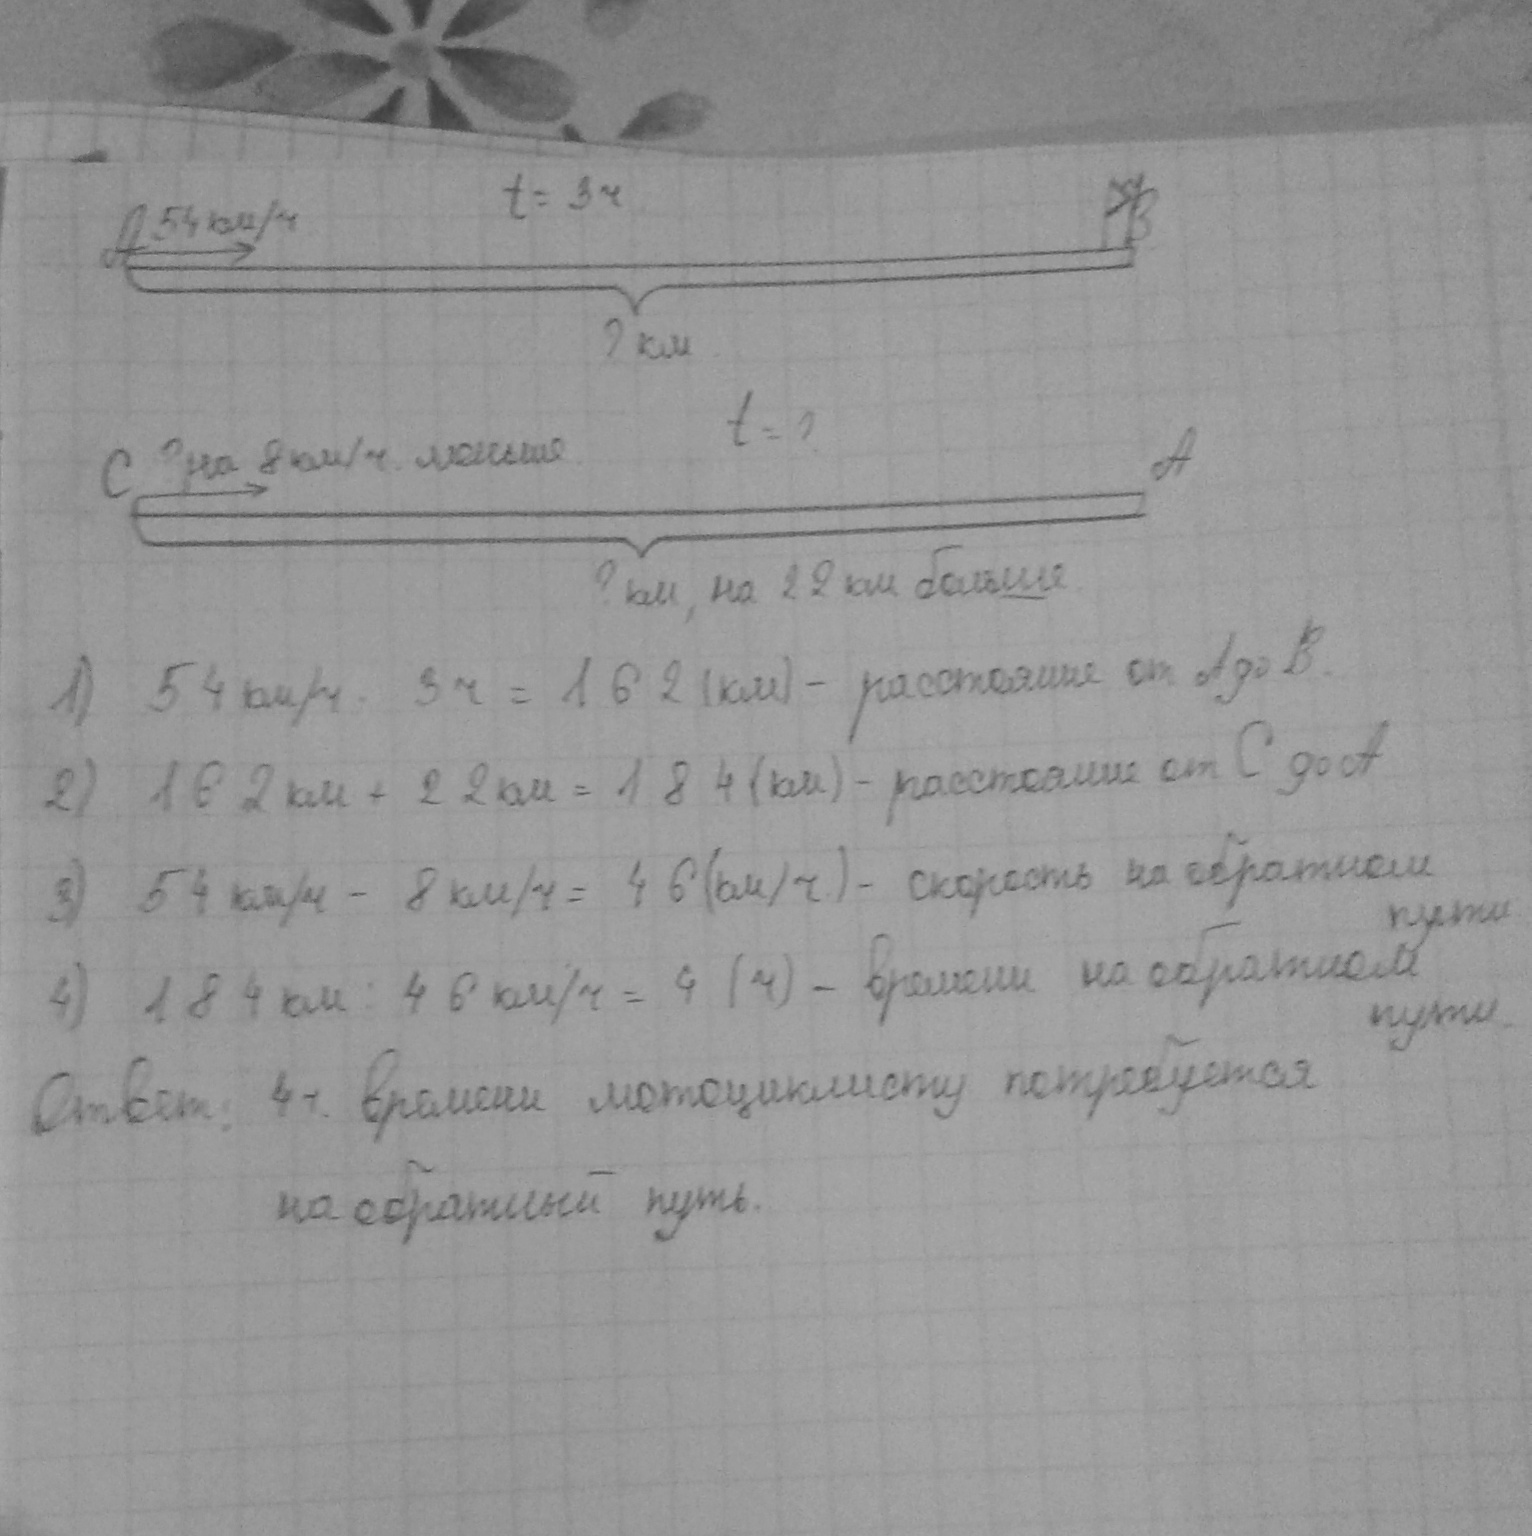 t = 3 ч
A 54 км/ч
B
? км
t = ?
C ? на 8 км/ч. меньше
A
? км, на 22 км больше.
1) 54 км/ч · 3 ч = 162 (км) – расстояние от A до B.
2) 162 км + 22 км = 184 (км) – расстояние от C до A
3) 54 км/ч – 8 км/ч = 46 (км/ч.) – скорость на обратном
пути
4) 184 км : 46 км/ч = 4 (ч) – времени на обратном
пути.
Ответ: 4 ч. времени мотоциклисту потребуется
на обратный путь.